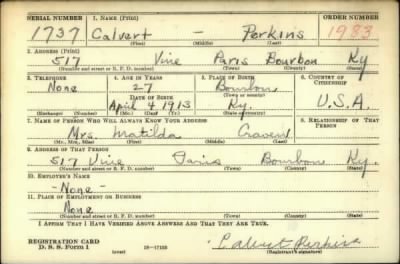 SERIAL NUMBER 1. NAME (Print) ORDER NUMBER
1737 Calvert — Perkins 1983
(First) (Middle) (Last)
2. ADDRESS (Print)
517 Vine Paris Bourbon Ky
(Number and street or R. F. D. number) (Town) (County) (State)
3. TELEPHONE 4. AGE IN YEARS 5. PLACE OF BIRTH 6. COUNTRY OF CITIZENSHIP
None 27 Bourbon
DATE OF BIRTH (Town or county)
April 4 1913 Ky. U.S.A.
(Exchange) (Number) (Mo.) (Day) (Yr.) (State or country)
7. NAME OF PERSON WHO WILL ALWAYS KNOW YOUR ADDRESS 8. RELATIONSHIP OF THAT PERSON
Mrs. Matilda Craven
(Mr., Mrs., Miss) (First) (Middle) (Last)
9. ADDRESS OF THAT PERSON
517 Vine Paris Bourbon Ky.
(Number and street or R. F. D. number) (Town) (County) (State)
10. EMPLOYER'S NAME
- None -
11. PLACE OF EMPLOYMENT OR BUSINESS
None
(Number and street or R. F. D. number) (Town) (County) (State)
I AFFIRM THAT I HAVE VERIFIED ABOVE ANSWERS AND THAT THEY ARE TRUE.
REGISTRATION CARD
D. S. S. Form 1 (over) 16—17105 Calvert Perkins
(Registrant's signature)